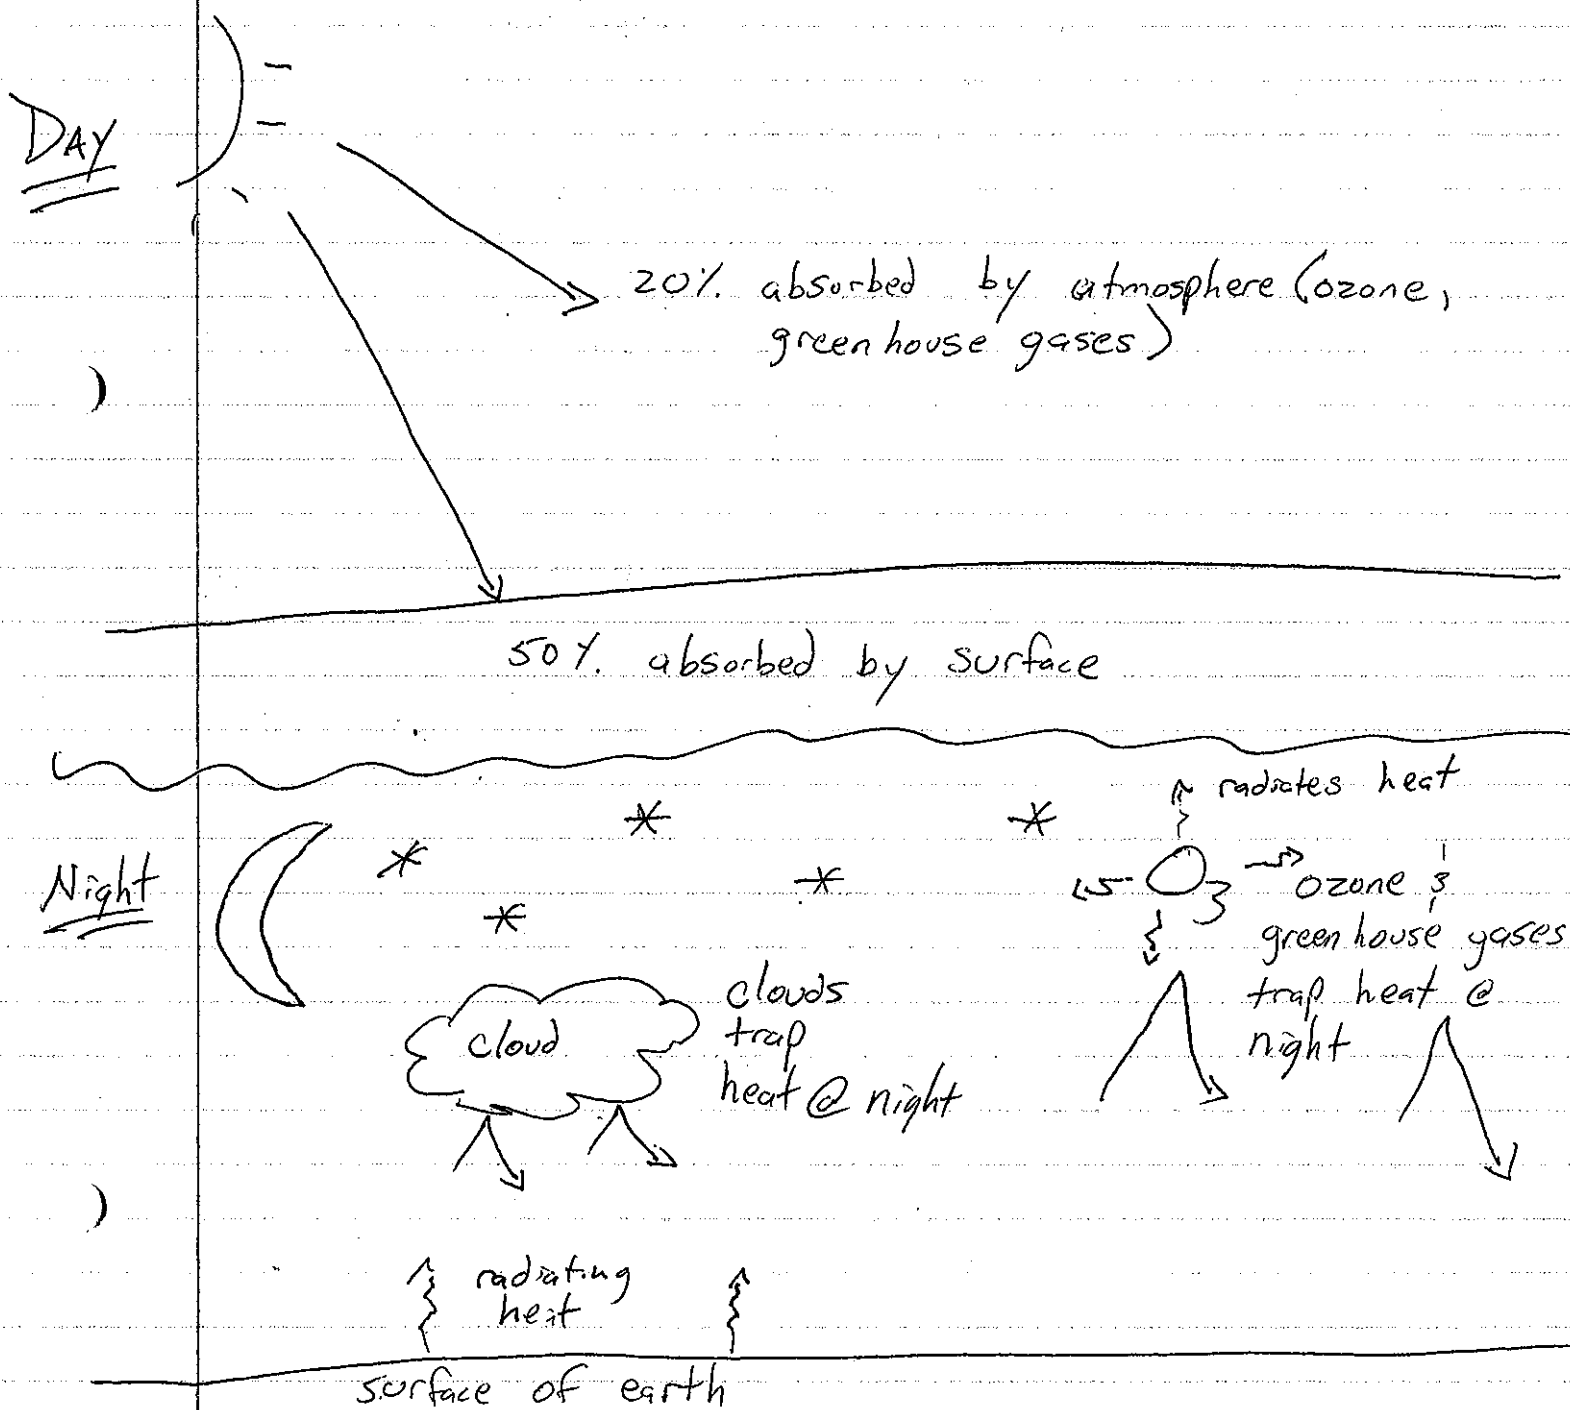 DAY
20% absorbed by atmosphere (ozone,
greenhouse gases)
50% absorbed by surface
radiates heat
Night
O3
ozone &
greenhouse gases
trap heat @
night
clouds
trap
heat @ night
cloud
radiating
heat
surface of earth